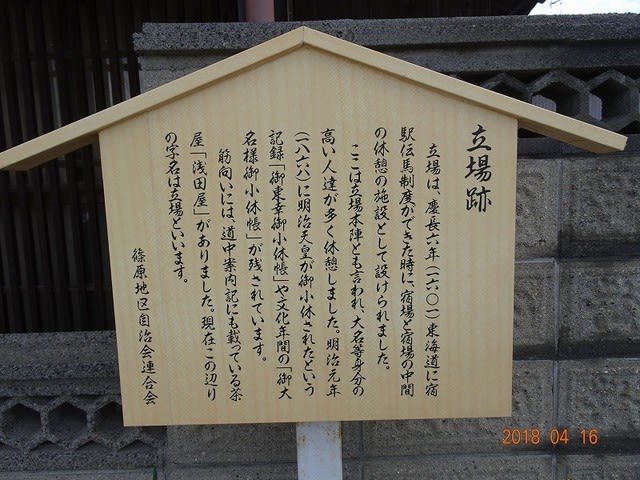 立場跡
立場は、慶長六年(一六〇一)東海道に宿
駅伝馬制度ができた時に、宿場と宿場の中間
の休憩の施設として設けられました。
ここは立場本陣とも言われ、大名等身分の
高い人達が多く休憩しました。明治元年
(一八六八)に明治天皇が御小休されたという
記録「御東幸御小休帳」や文化年間の「御大
名様御小休帳」が残されています。
筋向いには、道中案内記にも載っている茶
屋「浅田屋」がありました。現在この辺り
の字名は立場といいます。
篠原地区自治会連合会
2018 04 16